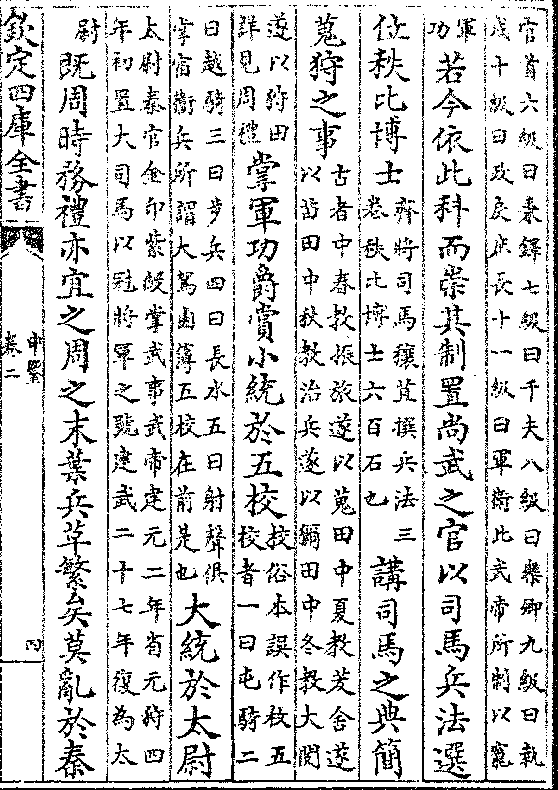 官首六級曰秉鐸七級曰千夫八級曰樂卿九級曰執
戎十級曰政戾庶長十一級曰軍衛此武帝所制以寵
軍
功
若今依此科而崇其制置尚武之官以司馬兵法選
位秩比博士
齊將司馬穰苴撰兵法三
卷秩比博士六百石也
講司馬之典簡
蒐狩之事
古者中春教振旅遂以蒐田中夏教茇舍遂
以苗田中秋教治兵遂以獮田中冬教大閱
遂以狩田
詳見周禮
掌軍功爵賞小統於五校
校俗本誤作枚五
校者一曰屯騎二
曰越騎三曰步兵四曰長水五曰射聲俱
掌宿衛兵所謂大駕鹵簿五校在前是也
大統於太尉
太尉秦官金印紫綬掌武事武帝建元二年省元狩四
年初置大司馬以冠將軍之號建武二十七年復為太
尉
既周時務禮亦宜之周之末葉兵革繁矣莫亂於秦
欽定四庫全書
申鑒
卷二
四